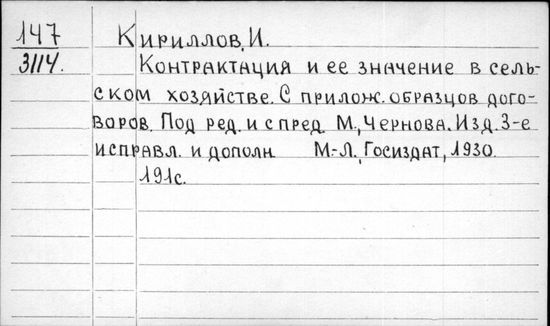 147 Кириллов, И.
3114. Контрактация и ее значение в сель-
ском хозяйстве. С прилож. образцов дого-
воров. Под ред. и с пред. М. Чернова. Изд. 3-е
исправл. и дополн М.-Л., Госиздат, 1930.
191с.